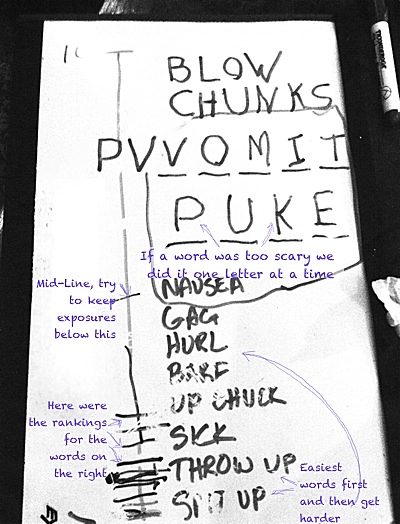 BLOW
CHUNKS
PVVOMIT
PUKE
If a word was too scary we
did it one letter at a time
NAUSEA
Mid-Line, try
to keep
exposures
below this
GAG
HURL
BARF
UP CHUCK
Here were
the rankings
for the
words on
the right
SICK
THROW UP
SPIT UP
Easiest
words first
and then get
harder